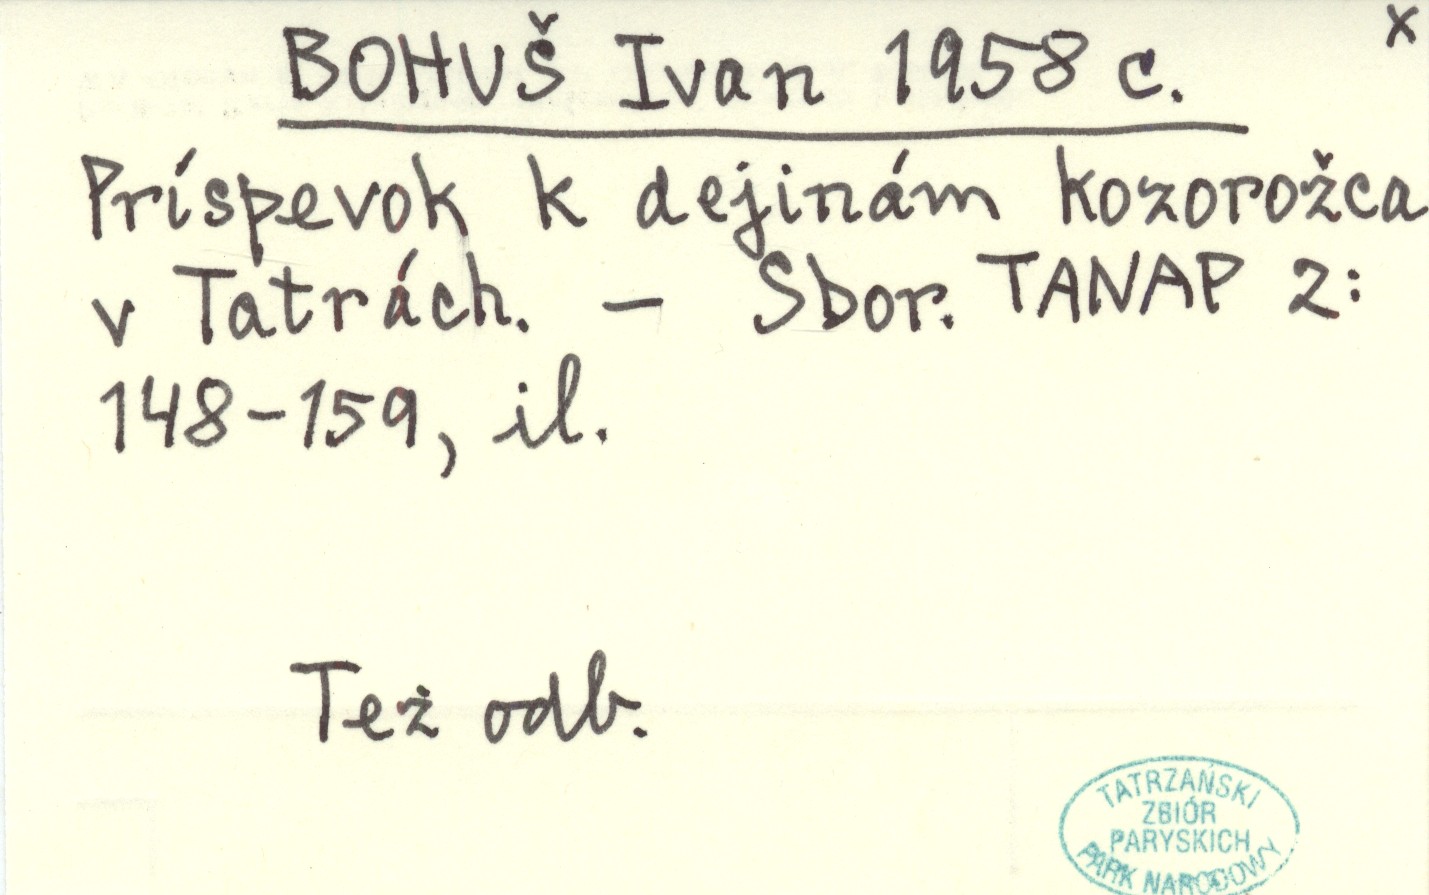 x
BOHUŠ Ivan 1958 c.
Príspevok k dejinám kozorožca
v Tatrách. – Sbor. TANAP 2:
148–159, il.
Też odb.
TATRZAŃSKI
ZBIÓR
PARYSKICH
PARK NARODOWY